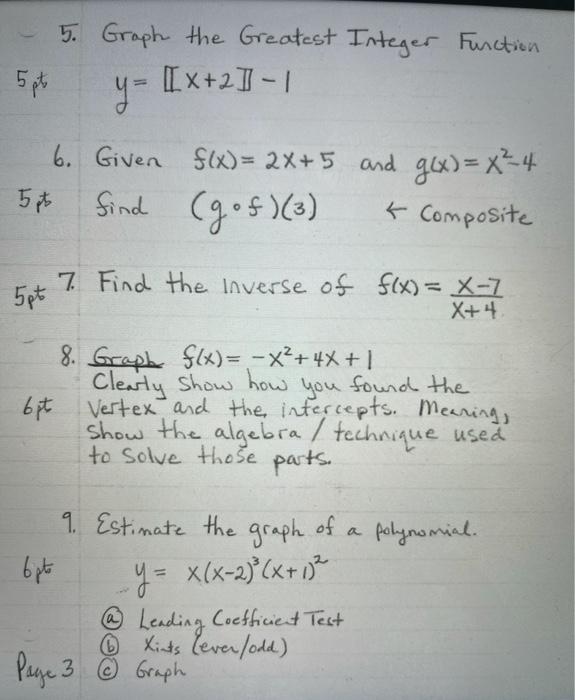 5. Graph the Greatest Integer Function
5pt y = [[x+2]] - 1
6. Given f(x) = 2x+5 and g(x) = x²-4
5pt find (g∘f)(3) ← Composite
5pt 7. Find the Inverse of f(x) = x-7
x+4
8. Graph f(x) = -x²+4x+1
Clearly Show how you found the
6pt Vertex and the intercepts. Meaning,
Show the algebra / technique used
to Solve those parts.
9. Estimate the graph of a polynomial.
6pt y = x(x-2)³(x+1)²
ⓐ Leading Coefficient Test
ⓑ Xints (even/odd)
Page 3 ⓒ Graph